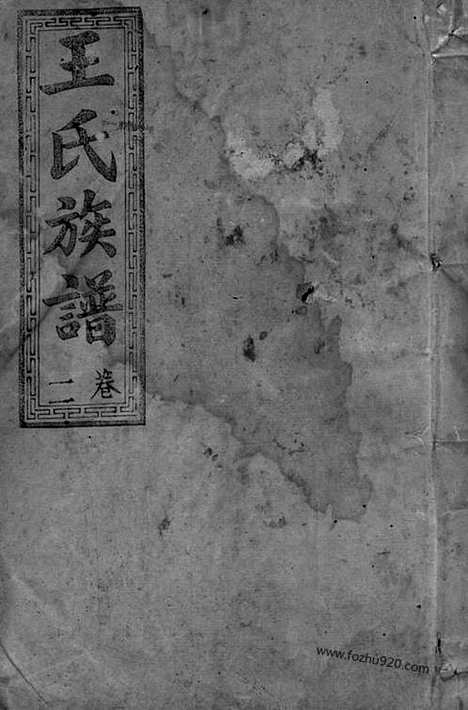 王氏族譜
卷
二
www.fozhu920.com